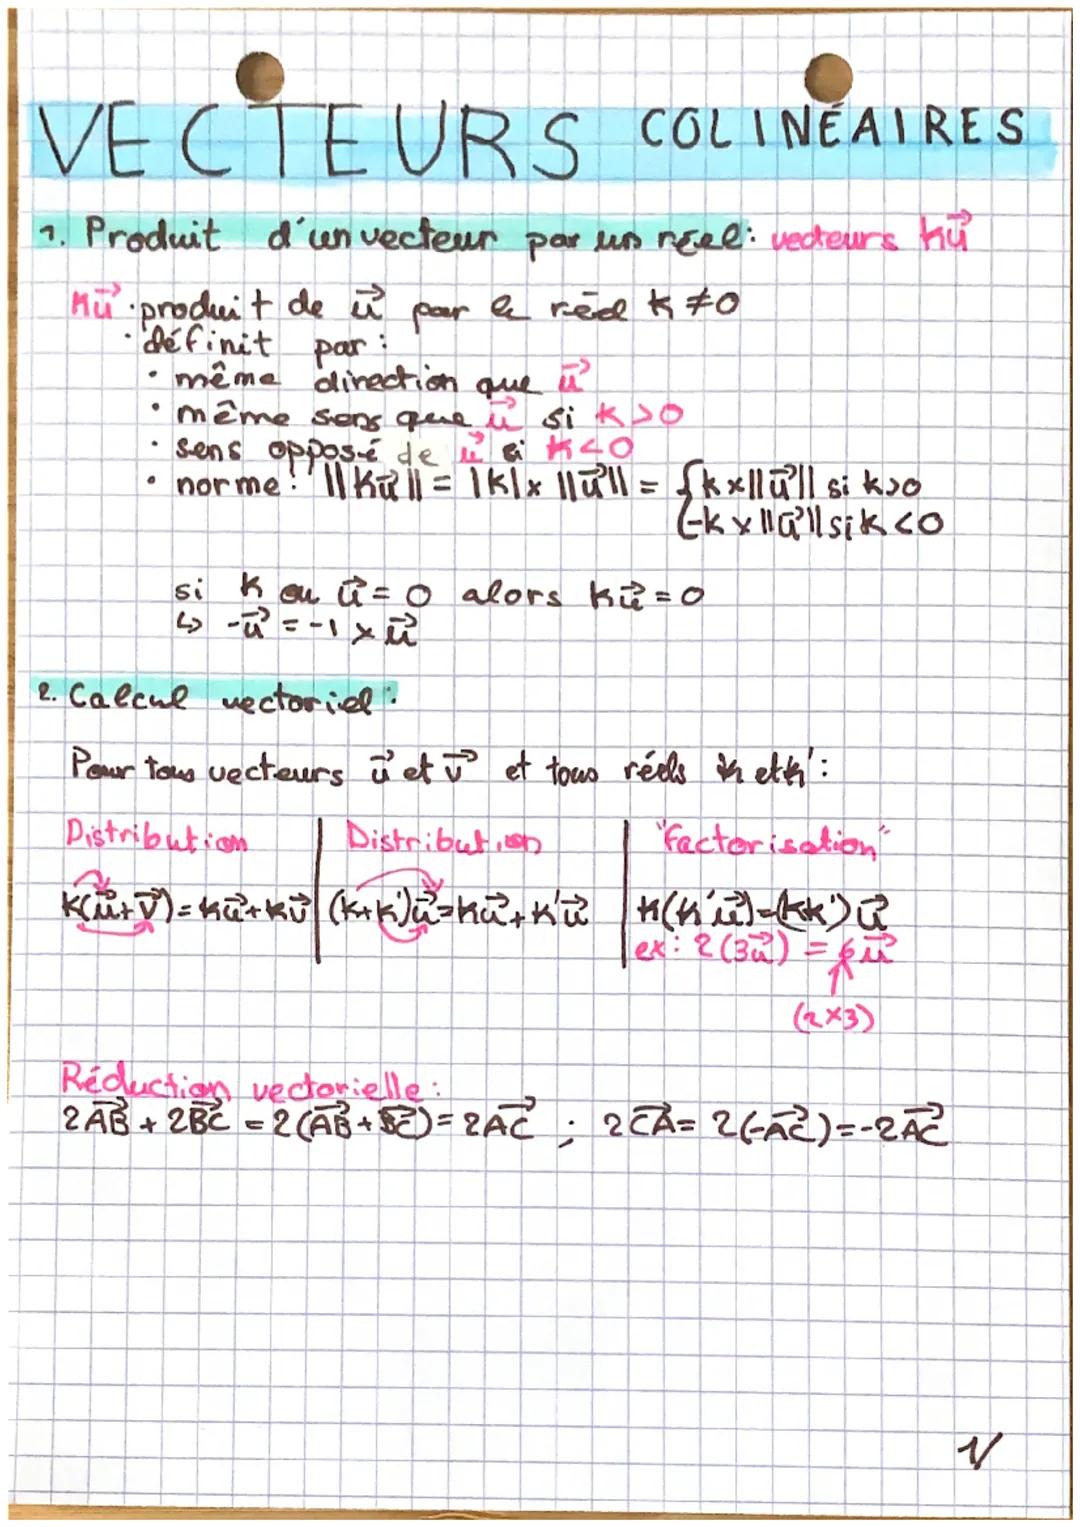 VECTEURS COLINÉAIRES
1. Produit d'un vecteur par un réel : vecteurs ku⃗
ku⃗ · produit de u⃗ par le réel k ≠ 0
· définit par :
· même direction que u⃗
· même sens que u⃗ si k > 0
· sens opposé de u⃗ si k < 0
· norme : ||ku⃗|| = |k| x ||u⃗|| = { k x ||u⃗|| si k > 0
{ -k x ||u⃗|| si k < 0
si k ou u⃗ = 0 alors ku⃗ = 0
↳ -u⃗ = -1 x u⃗
2. Calcul vectoriel :
Pour tous vecteurs u⃗ et v⃗ et tous réels k et k' :
Distribution
k(u⃗ + v⃗) = ku⃗ + kv⃗
Distribution
(k + k')u⃗ = ku⃗ + k'u⃗
"Factorisation"
k(k'u⃗) = (kk')u⃗
ex : 2(3u⃗) = 6u⃗
(2x3)
Réduction vectorielle :
2AB⃗ + 2BC⃗ = 2(AB⃗ + BC⃗) = 2AC⃗ ; 2CA⃗ = 2(-AC⃗) = -2AC⃗
1/